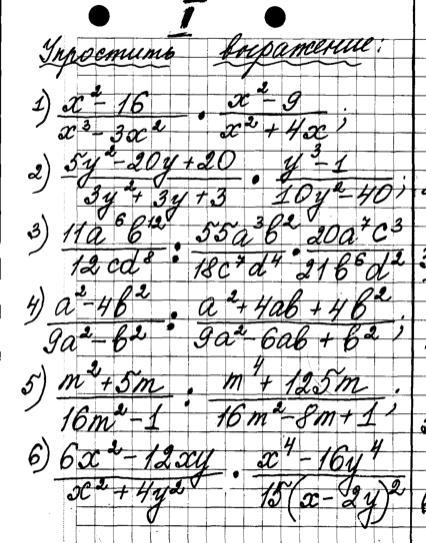 I
Упростить выражение:
1) (x² - 16)/(x³ - 3x²) · (x² - 9)/(x² + 4x);
2) (5y² - 20y + 20)/(3y² + 3y + 3) · (y³ - 1)/(10y² - 40);
3) (11a⁶b¹²)/(12cd⁸) : (55a³b²)/(18c⁷d⁴) · (20a⁷c³)/(21b⁶d²)
4) (a² - 4b²)/(9a² - b²) : (a² + 4ab + 4b²)/(9a² - 6ab + b²);
5) (m² + 5m)/(16m² - 1) : (m⁴ + 125m)/(16m² - 8m + 1);
6) (6x² - 12xy)/(x² + 4y²) · (x⁴ - 16y⁴)/(15(x - 2y)²)